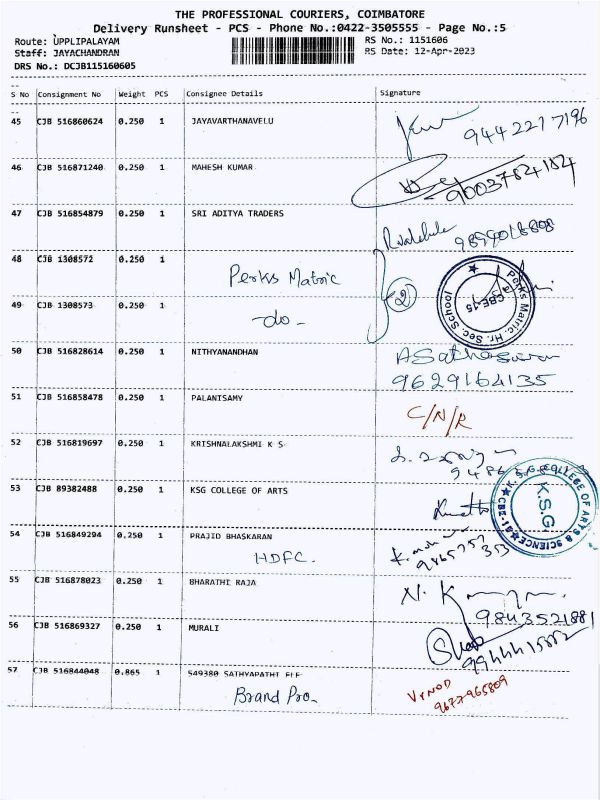 THE PROFESSIONAL COURIERS, COIMBATORE
Delivery Runsheet - PCS - Phone No.:0422-3505555 - Page No.:5
Route: UPPLIPALAYAM RS No.: 1151606
Staff: JAYACHANDRAN RS Date: 12-Apr-2023
DRS No.: DCJB115160605
S No Consignment No Weight PCS Consignee Details Signature
45 CJB 516860624 0.250 1 JAYAVARTHANAVELU
9442217196
46 CJB 516871240 0.250 1 MAHESH KUMAR
9003784184
47 CJB 516854879 0.250 1 SRI ADITYA TRADERS
48 CJB 1308572 0.250 1
Perks Matric
2
Perks Matric. Hr. Sec. School
CBE-15
49 CJB 1308573 0.250 1
-do-
50 CJB 516828614 0.250 1 NITHYANANDHAN
9629164135
51 CJB 516858478 0.250 1 PALANISAMY
C/N/R
52 CJB 516819697 0.250 1 KRISHNALAKSHMI K S
53 CJB 89382488 0.250 1 KSG COLLEGE OF ARTS
K.S.G. COLLEGE OF ARTS & SCIENCE
K.S.G
54 CJB 516849294 0.250 1 PRAJID BHASKARAN
HDFC.
55 CJB 516878023 0.250 1 BHARATHI RAJA
9843521881
56 CJB 516869327 0.250 1 MURALI
57 CJB 516844048 0.865 1 549380 SATHYAPATHI
Brand Pro.
9677965809